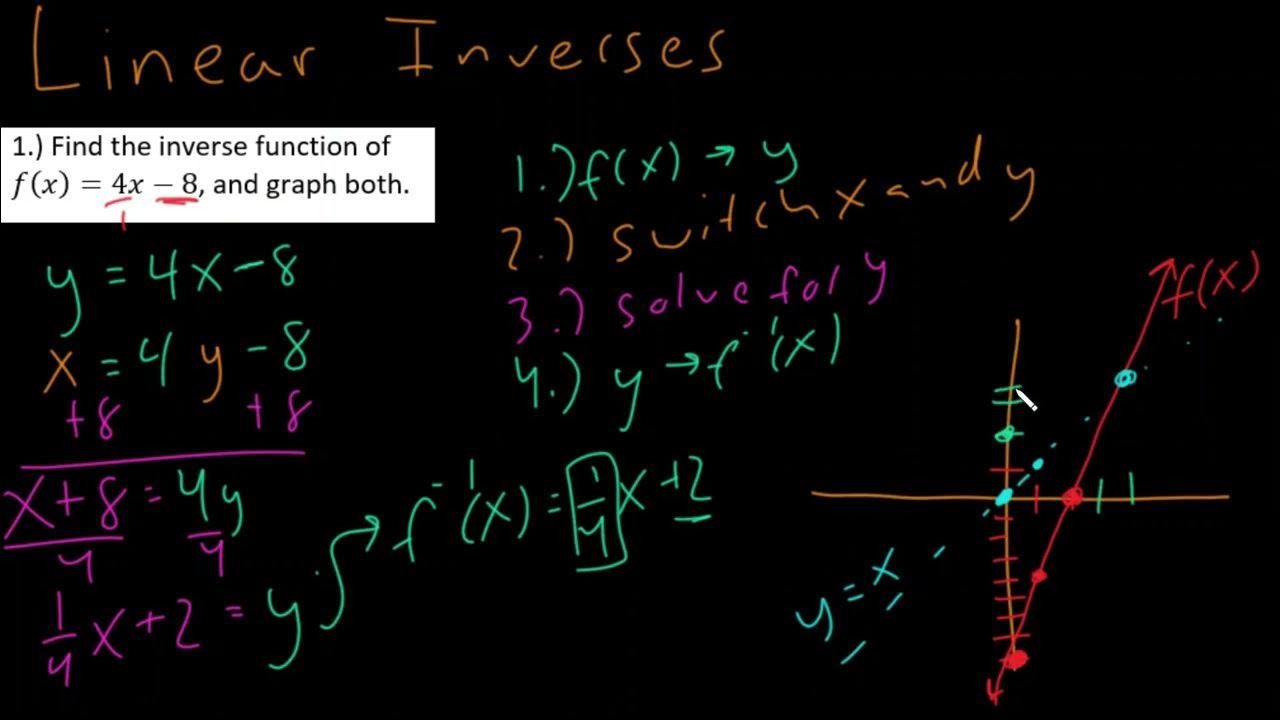 Linear Inverses
1.) Find the inverse function of
f(x) = 4x − 8, and graph both.
1
y = 4x - 8
x = 4 y - 8
+8 +8
x + 8 = 4y
4 4
1/4 x + 2 = y
1.) f(x) → y
2.) switch x and y
3.) solve for y
4.) y → f⁻¹(x)
f⁻¹(x) = 1/4 x + 2
f(x)
y = x